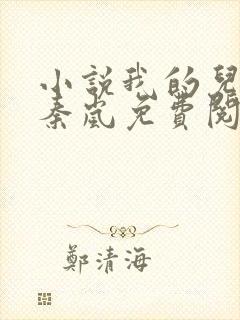 小說我的兒
秦嵐免費閱
鄭清海